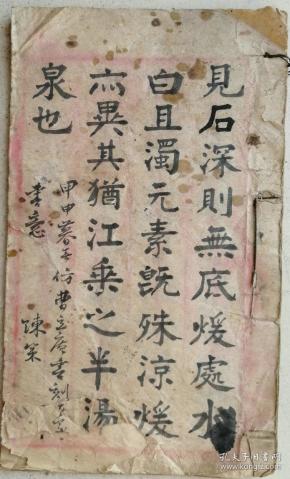 見石深則無底煖處水
白且濁元素既殊涼煖
亦異其猶江乘之半湯
泉也
甲申暮
書意
孔夫子旧书网